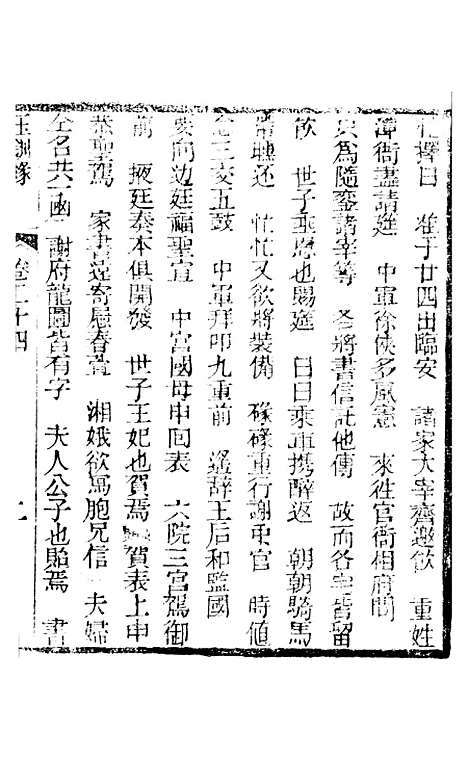 擇日　准于廿四出臨安　諸家大宰齊邀飲　重姓
衙盡請筵　中軍徐俠多風憲　來往官衙相府間
只為隨鑾諸宰等　各將書信託他傳　故而各宅皆留
飲　世子乖恩也賜筵　日日乘車携醉返　朝朝騎馬
醉還　忙忙又欲將裝備　碌碌重行謝眾官　時值
三交五鼓　中軍拜叩九重前　遙辭王后和監國
要向边廷福聖宣　中宮國母申回表　六院三宮駕御
前　掖廷奏本俱開發　世子王妃也賀焉　賀表上申
恭聖駕　家書遠寄慰春萱　湘娥欲寫胞兄信　夫婦
全名共一函　謝府龍圖皆有字　夫人公子也貽焉　書
玉釧緣　卷二十四